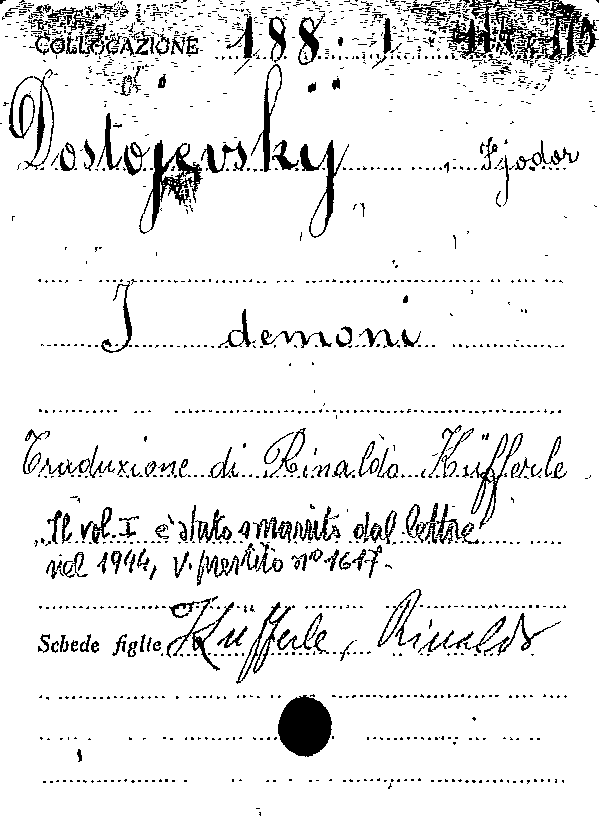 COLLOCAZIONE 188. 1
Dostojevskij, Fjodor
I demoni
Traduzione di Rinaldo Küfferle
"Il vol. I è stato smarrito dal lettore
nel 1944, v. prestito nº 1617.
Schede figlie Küfferle, Rinaldo